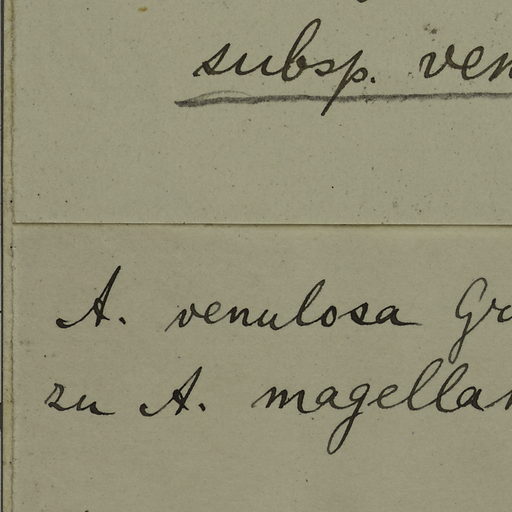 subsp. ven
A. venulosa Gr
zu A. magellan